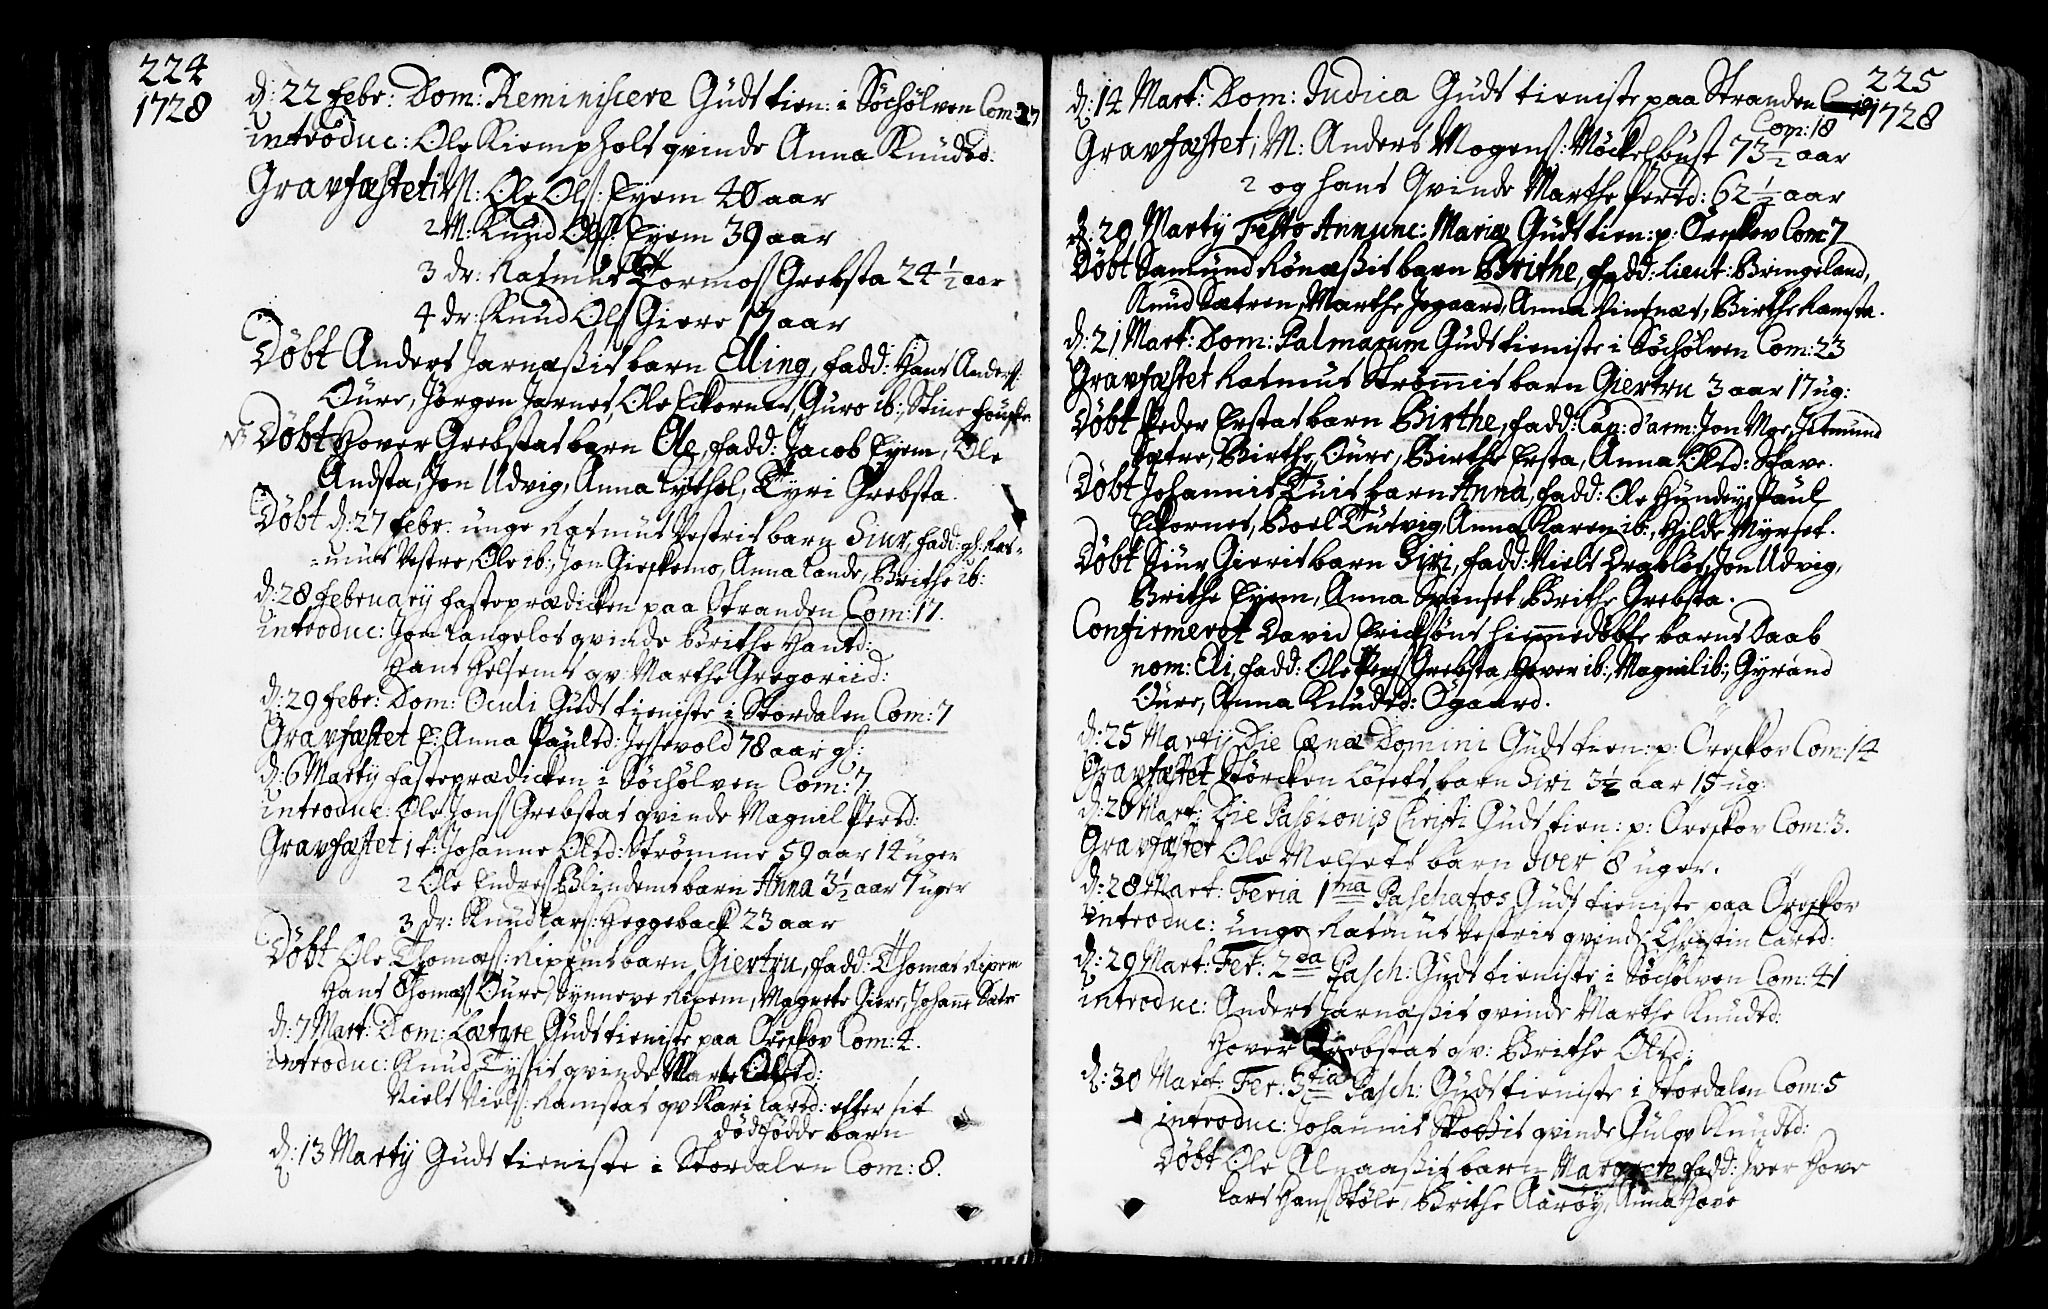 224
1728
d: 22 Febr: Dom: Reminiscere Guds tien: i Söchölven Com: 27
introduc: Ole Kiempholt qvinde Anna Knudsd:
Gravfæstet 1 M: Ole Ols: Eyem 40 aar
2 M: Knud Ols: Eyem 39 aar
3 dr: Rasmus Tormos Grebsta 24 1/2 aar
4 dr: Knud Ols Giere 17 aar
Döbt Anders Jarnæssis barn Elling, fadd: Hans Anders:
Oure, Jörgen Jarnes, Ole Ekornes, Guro ib:, Stine
NB Döbt Hover Grebstas barn Ole, fadd: Jacob Eyem, Ole
Andsta, Jon Udvig, Anna Lythol, Tyri Grebsta.
Döbt d: 27 Febr: unge Rasmus Vestris barn Siur, fadd: gl: Ras=
=mus Vestre, Ole ib:, Jon Gieskemo, Anna Lande, Brithe ib:
d: 28 February fasteprædicken paa Stranden Com: 17.
introduc: Jon Langelos qvinde Brithe Hansd:
Hans Helsems qv: Marthe Gregoriid:
d: 29 Febr: Dom: Oculi Guds tieniste i Stordalen Com: 7
Gravfæstet E: Anna Paulsd: Jessevold 78 aar gl:
d: 6 Martij fasteprædicken i Söchölven Com: 7.
introduc: Ole Jons Grebstas qvinde Magnil Persd:
Gravfæstet 1 E: Johanne Olsd: Strömme 59 aar 14 uger
2 Ole Endres Blindems barn Anna 3 1/2 aar 7 uger
3 dr: Knud Lars: Heggeback 23 aar
Döbt Ole Thomæs: Ripems barn Giertru, fadd: Thomas Ripem
Hans Thomæs Oure, Synneve Ripem, Magrete Giere, Johanne Sætre
d: 7 Mart: Dom: Lætare Guds tieniste paa Öreskov Com: 4.
introduc: Knud Tyssis qvinde Marte Olsd:
Niels Niels: Ramstas qv Kari Larsd: efter sit
dödfödde barn
d: 13 Martij Guds tieniste i Stordalen Com: 8.
225
1728
d: 14 Mart: Dom: Judica Guds tieniste paa Stranden
Com: 18
Gravfæstet, 1 M: Anders Mogens: Möckelbust 73 1/2 aar
2 og hans Qvinde Marthe Persd: 62 1/2 aar
d: 20 Martij Festo Annunc: Mariæ Guds tien: p: Öreskov Com: 7
Döbt Samund Rönæssis barn Brithe, fadd: Lieut: Bringeland,
Knud Sætren, Marthe Jogaard, Anna Vinsnæs, Birthe Ramsta.
d: 21 Mart: Dom: Palmarum Guds tieniste i Söchölven Com: 23
Gravfæstet Rasmus Strömmis barn Giertru 3 aar 17 ug:
Döbt Peder Erstas barn Birthe, fadd: Cap: d'arm: Jon Moe, Jetmund
Sætre, Birthe Oure, Birthe Ersta, Anna Olsd: Skave.
Döbt Johannis Tuis barn Anna, fadd: Ole Hundey, Paul
Ekornes, Boel Tusvig, Anna Karen ib:, Hilde Myrset.
Döbt Siur Gieris barn Siri, fadd: Niels Drablös, Jon Udvig,
Brithe Eyem, Anna Svenset, Brithe Grebsta.
Confirmeret David Ericksöns hiemmedöbte barns Daab
nom: Eli, fadd: Ole Pers Grebsta, Hover ib:, Magnil ib:, Gyrand
Oure, Anna Knudsd: Ögaard.
d: 25 Martij Die Cænæ Domini Guds tien: p: Öreskov Com: 14
Gravfæstet Störcken Lösets barn Siri 3 1/2 aar 15 ug:
d: 26 Mart: Die Passionis Christi Guds tien: p: Öreskov Com: 3.
Gravfæstet Ole Melsets barn Iver 8 uger.
d: 28 Mart: Feria 1ma Paschatos Guds tieniste paa Öreskov
introduc: unge Rasmus Vestris qvinde Christin Larsd:
d: 29 Mart: Fer: 2da Pasch: Guds tieniste i Söchölven Com: 41
introduc: Anders Jarnæssis qvinde Marthe Knudsd:
Hover Grebstas qv: Brithe Olsd:
d: 30 Mart: Fer: 3tia Pasch: Guds tieniste i Stordalen Com: 5
introduc: Johannis Skodsis qvinde Gulov Knudsd:
Döbt Ole Alnaassis barn Margrete, fadd: Iver Hove
Lars Hans Stöle, Brithe Aaröy, Anna Hove